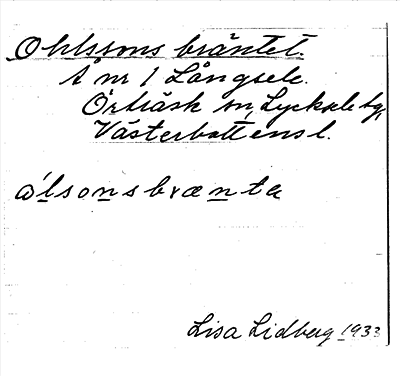 Ohlssons bräntet.
Å nr 1 Långsele.
Örträsk sn, Lycksele tg,
Västerbottens l.
ålsonsbrænta
Lisa Lidberg 1933